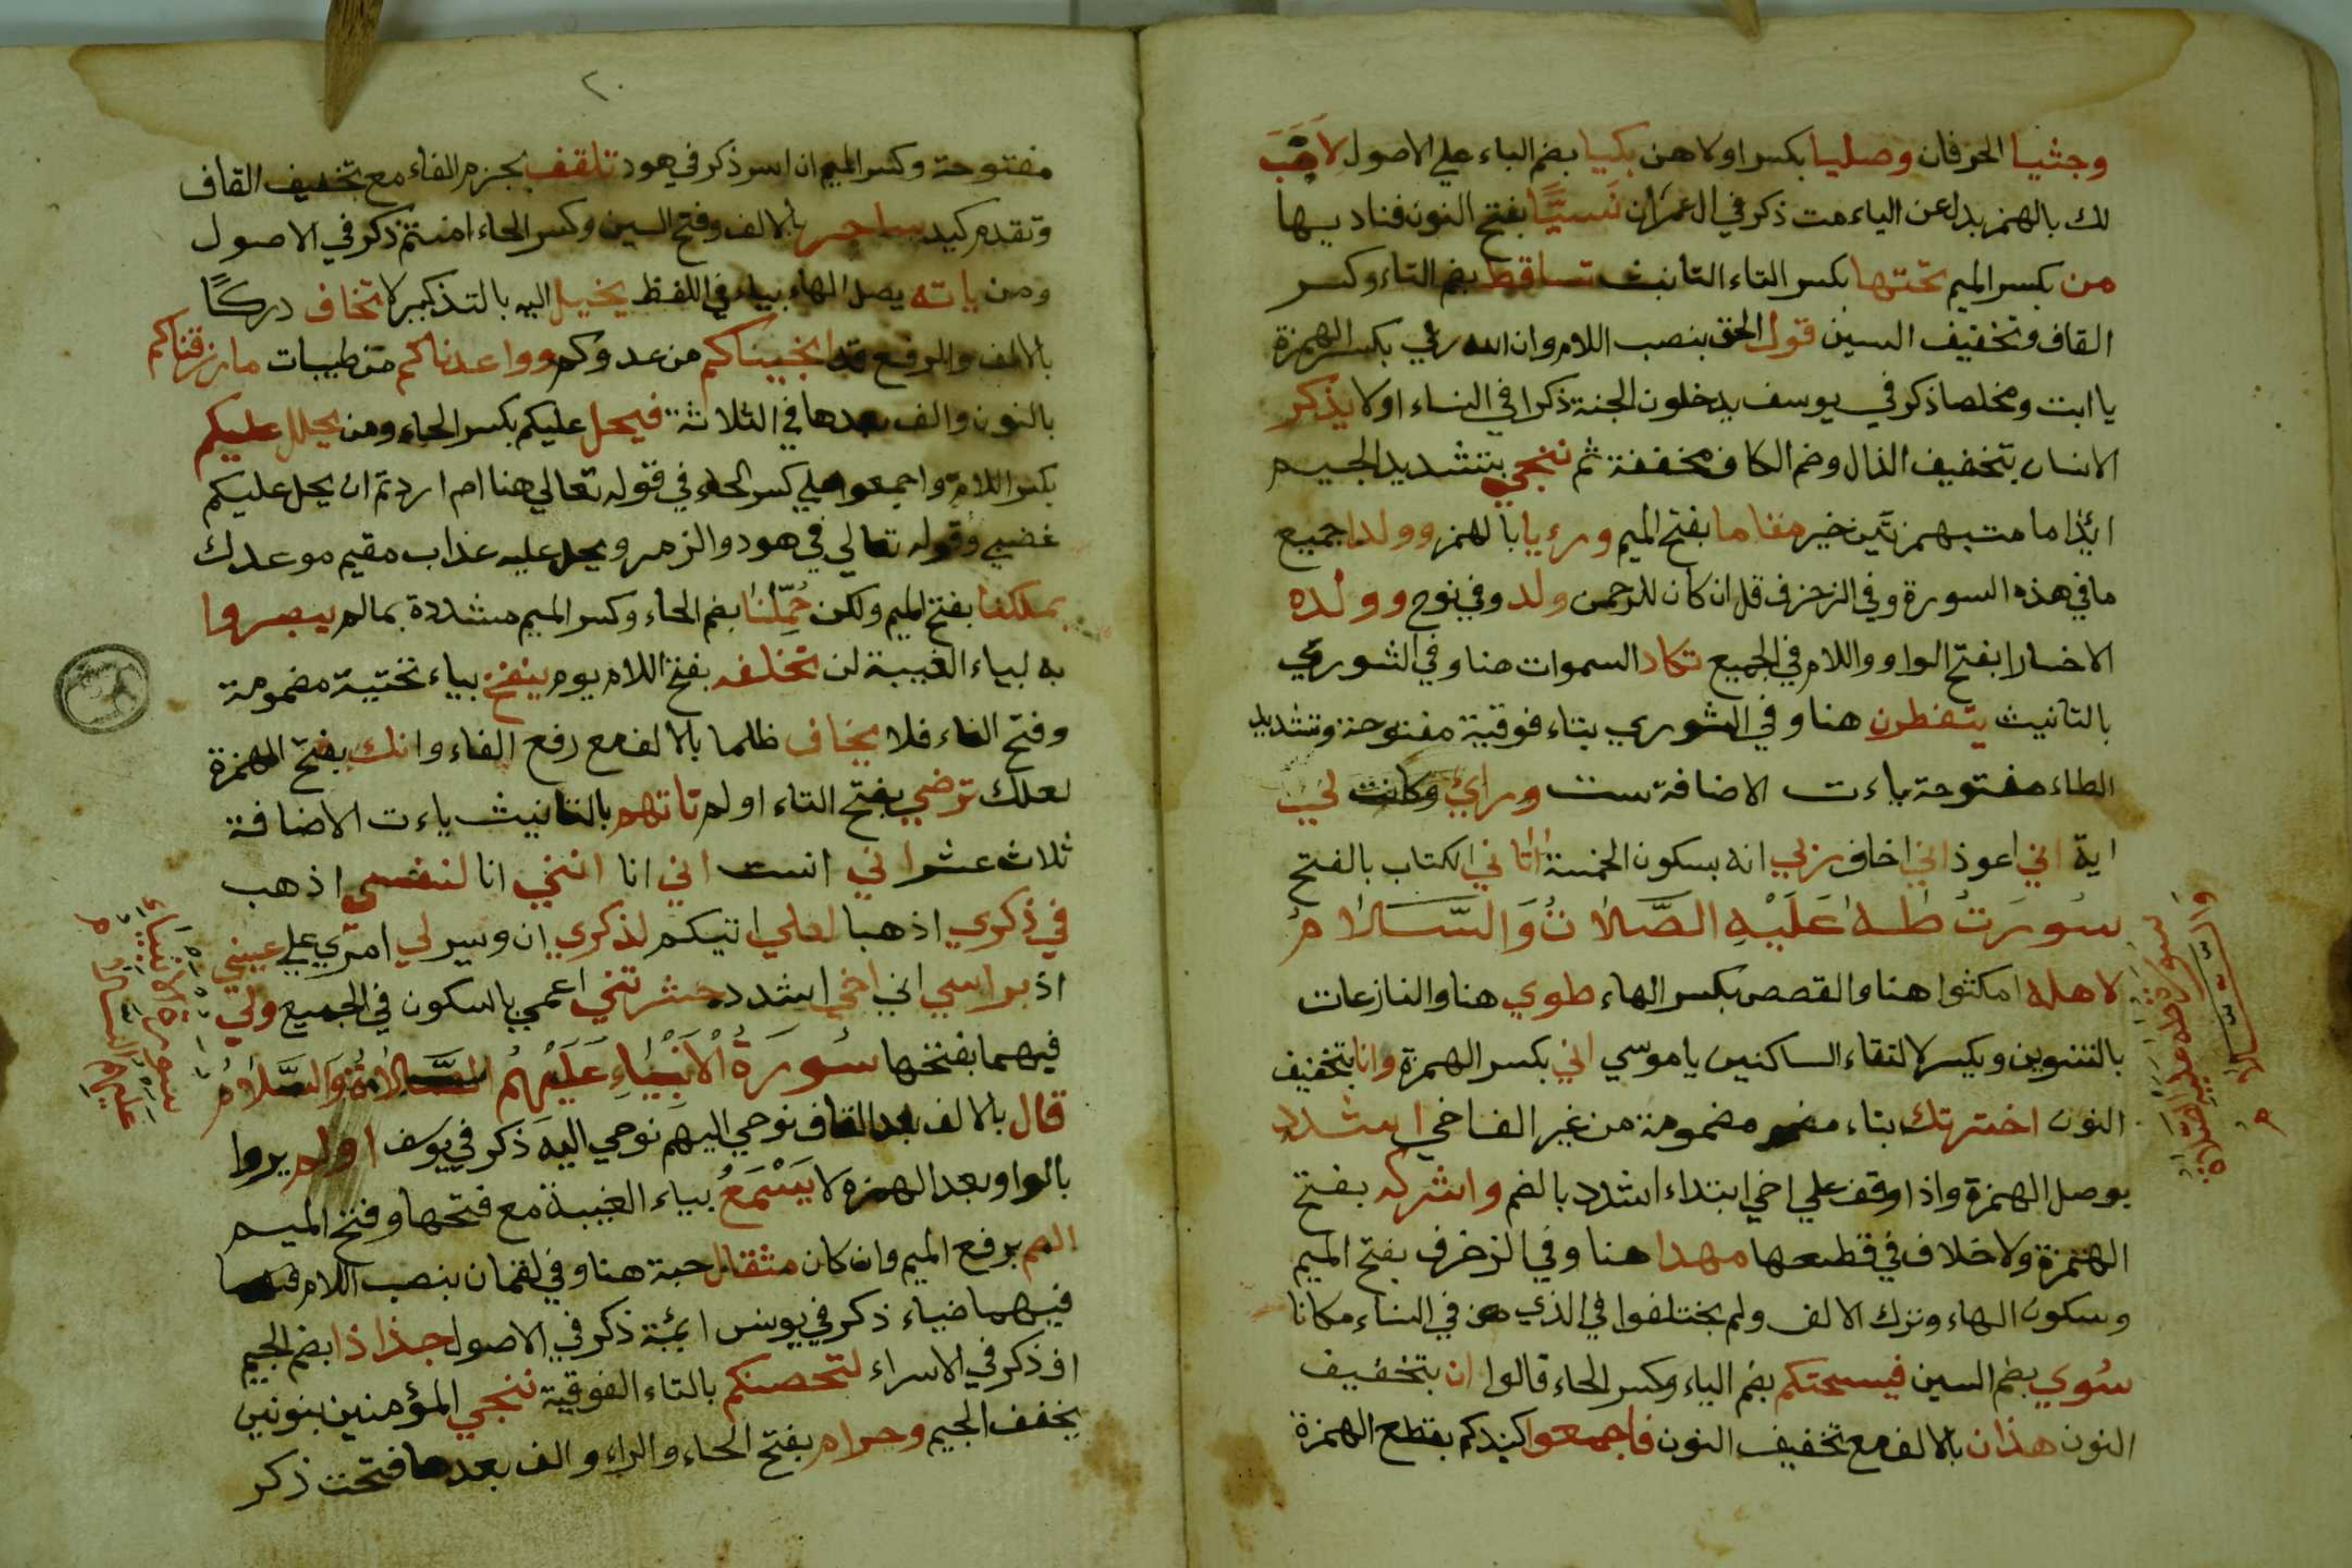 وجثيا الحرفان وصليا بكسر اولاهن بكيا بضم الباء علي الاصول لاهب
لك بالهمز بدل عن الياء مت ذكر في ال عمران نسيا بفتح النون فناديها
من بكسر الميم تحتها بكسر التاء التانيث تساقط بضم التاء وكسر
القاف وتخفيف السين قول الحق بنصب اللام وان الله ربي بكسر الهمزة
يا ابت ومخلصا ذكر في يوسف يدخلون الجنة ذكرا في النساء اولا يذكر
الانسان بتخفيف الذال وضم الكاف مخففة ثم ننجي بتشديد الجيم
ائذا ما مت بهمزتين خير مقاما بفتح الميم ورءيا بالهمز وولدا جميع
ما في هذه السورة وفي الزخرف قل ان كان للرحمن ولد وفي نوح وولده
الا خسارا بفتح الواو واللام في الجميع تكاد السموات هنا وفي الشوري
بالتانيث يتفطرن هنا وفي الشوري بتاء فوقية مفتوحة وتشديد
الطاء مفتوحة ياءت الاضافة ست وراي وكانت لي
اية اني اعوذ اني اخاف ربي انه بسكون الخمسة اتاني الكتاب بالفتح
سورت طه عليه الصلات والسلام
لاهله امكثوا هنا والقصص بكسر الهاء طوي هنا والنازعات
بالتنوين ويكسر لالتقاء الساكنين يا موسي اني بكسر الهمزة وانا بتخفيف
النون اخترتك بتاء مضمومة من غير الف اخي اشدد
بوصل الهمزة واذا وقف علي اخي ابتداء اشدد بالضم واشركه بفتح
الهمزة ولا خلاف في قطعها مهدا هنا وفي الزخرف بفتح الميم
وسكون الهاء وترك الالف ولم يختلفوا في الذي في النباء مكانا
سوي بضم السين فيسحتكم بضم الياء وكسر الحاء قالوا ان بتخفيف
النون هذان بالالف مع تخفيف النون فاجمعوا كيدكم بقطع الهمزة
٢٠
مفتوحة وكسر الميم ان اسر ذكر في هود تلقف بجزم الفاء مع تخفيف القاف
وتقدم كيد ساحر بالالف وفتح السين وكسر الحاء امنتم ذكر في الاصول
ومن ياته يصل الهاء بياء في اللفظ يخيل اليه بالتذكير لا تخاف دركا
بالالف والرفع قد انجيناكم من عدوكم وواعدناكم من طيبات ما رزقناكم
بالنون والف بعدها في الثلاثة فيحل عليكم بكسر الحاء ومن يحلل عليكم
بكسر اللام واجمعوا علي كسر الحاء في قوله تعالي هنا ام اردتم ان يحل عليكم
غضبي وقوله تعالي في هود والزمر ويحل عليه عذاب مقيم موعدك
بملكنا بفتح الميم ولكن حملنا بضم الحاء وكسر الميم مشددة بما لم يبصروا
به لبياء الغيبة لن تخلفه بفتح اللام يوم ينفخ بياء تحتية مضمومة
وفتح الفاء فلا يخاف ظلما بالالف مع رفع الفاء وانك بفتح الهمزة
لعلك ترضي بفتح التاء اولم تاتهم بالتانيث ياءت الاضافة
ثلاث عشر اني انست اني انا انني انا لنفسي اذهب
في ذكري اذهبا لعلي اتيكم لذكري ان ويسر لي امري علي عيني
اذ براسي اني اخي اشدد حشرتني اعمي بالسكون في الجميع ولي
فيهما بفتحها سورة الانبياء عليهم الصلات والسلام
قال بالالف بعد القاف نوحي اليهم نوحي اليه ذكر في يوسف اولم يروا
بالواو بعد الهمزة لا يسمع بياء الغيبة مع فتحها وفتح الميم
الصم برفع الميم وان كان مثقال حبة هنا وفي لقمان بنصب اللام
فيهما ضياء ذكر في يونس ائمة ذكر في الاصول جذاذا بضم الجيم
اف ذكر في الاسراء لتحصنكم بالتاء الفوقية ننجي المؤمنين بنونين
يخفف الجيم وحرام بفتح الحاء والراء والف بعدها فتحت ذكر